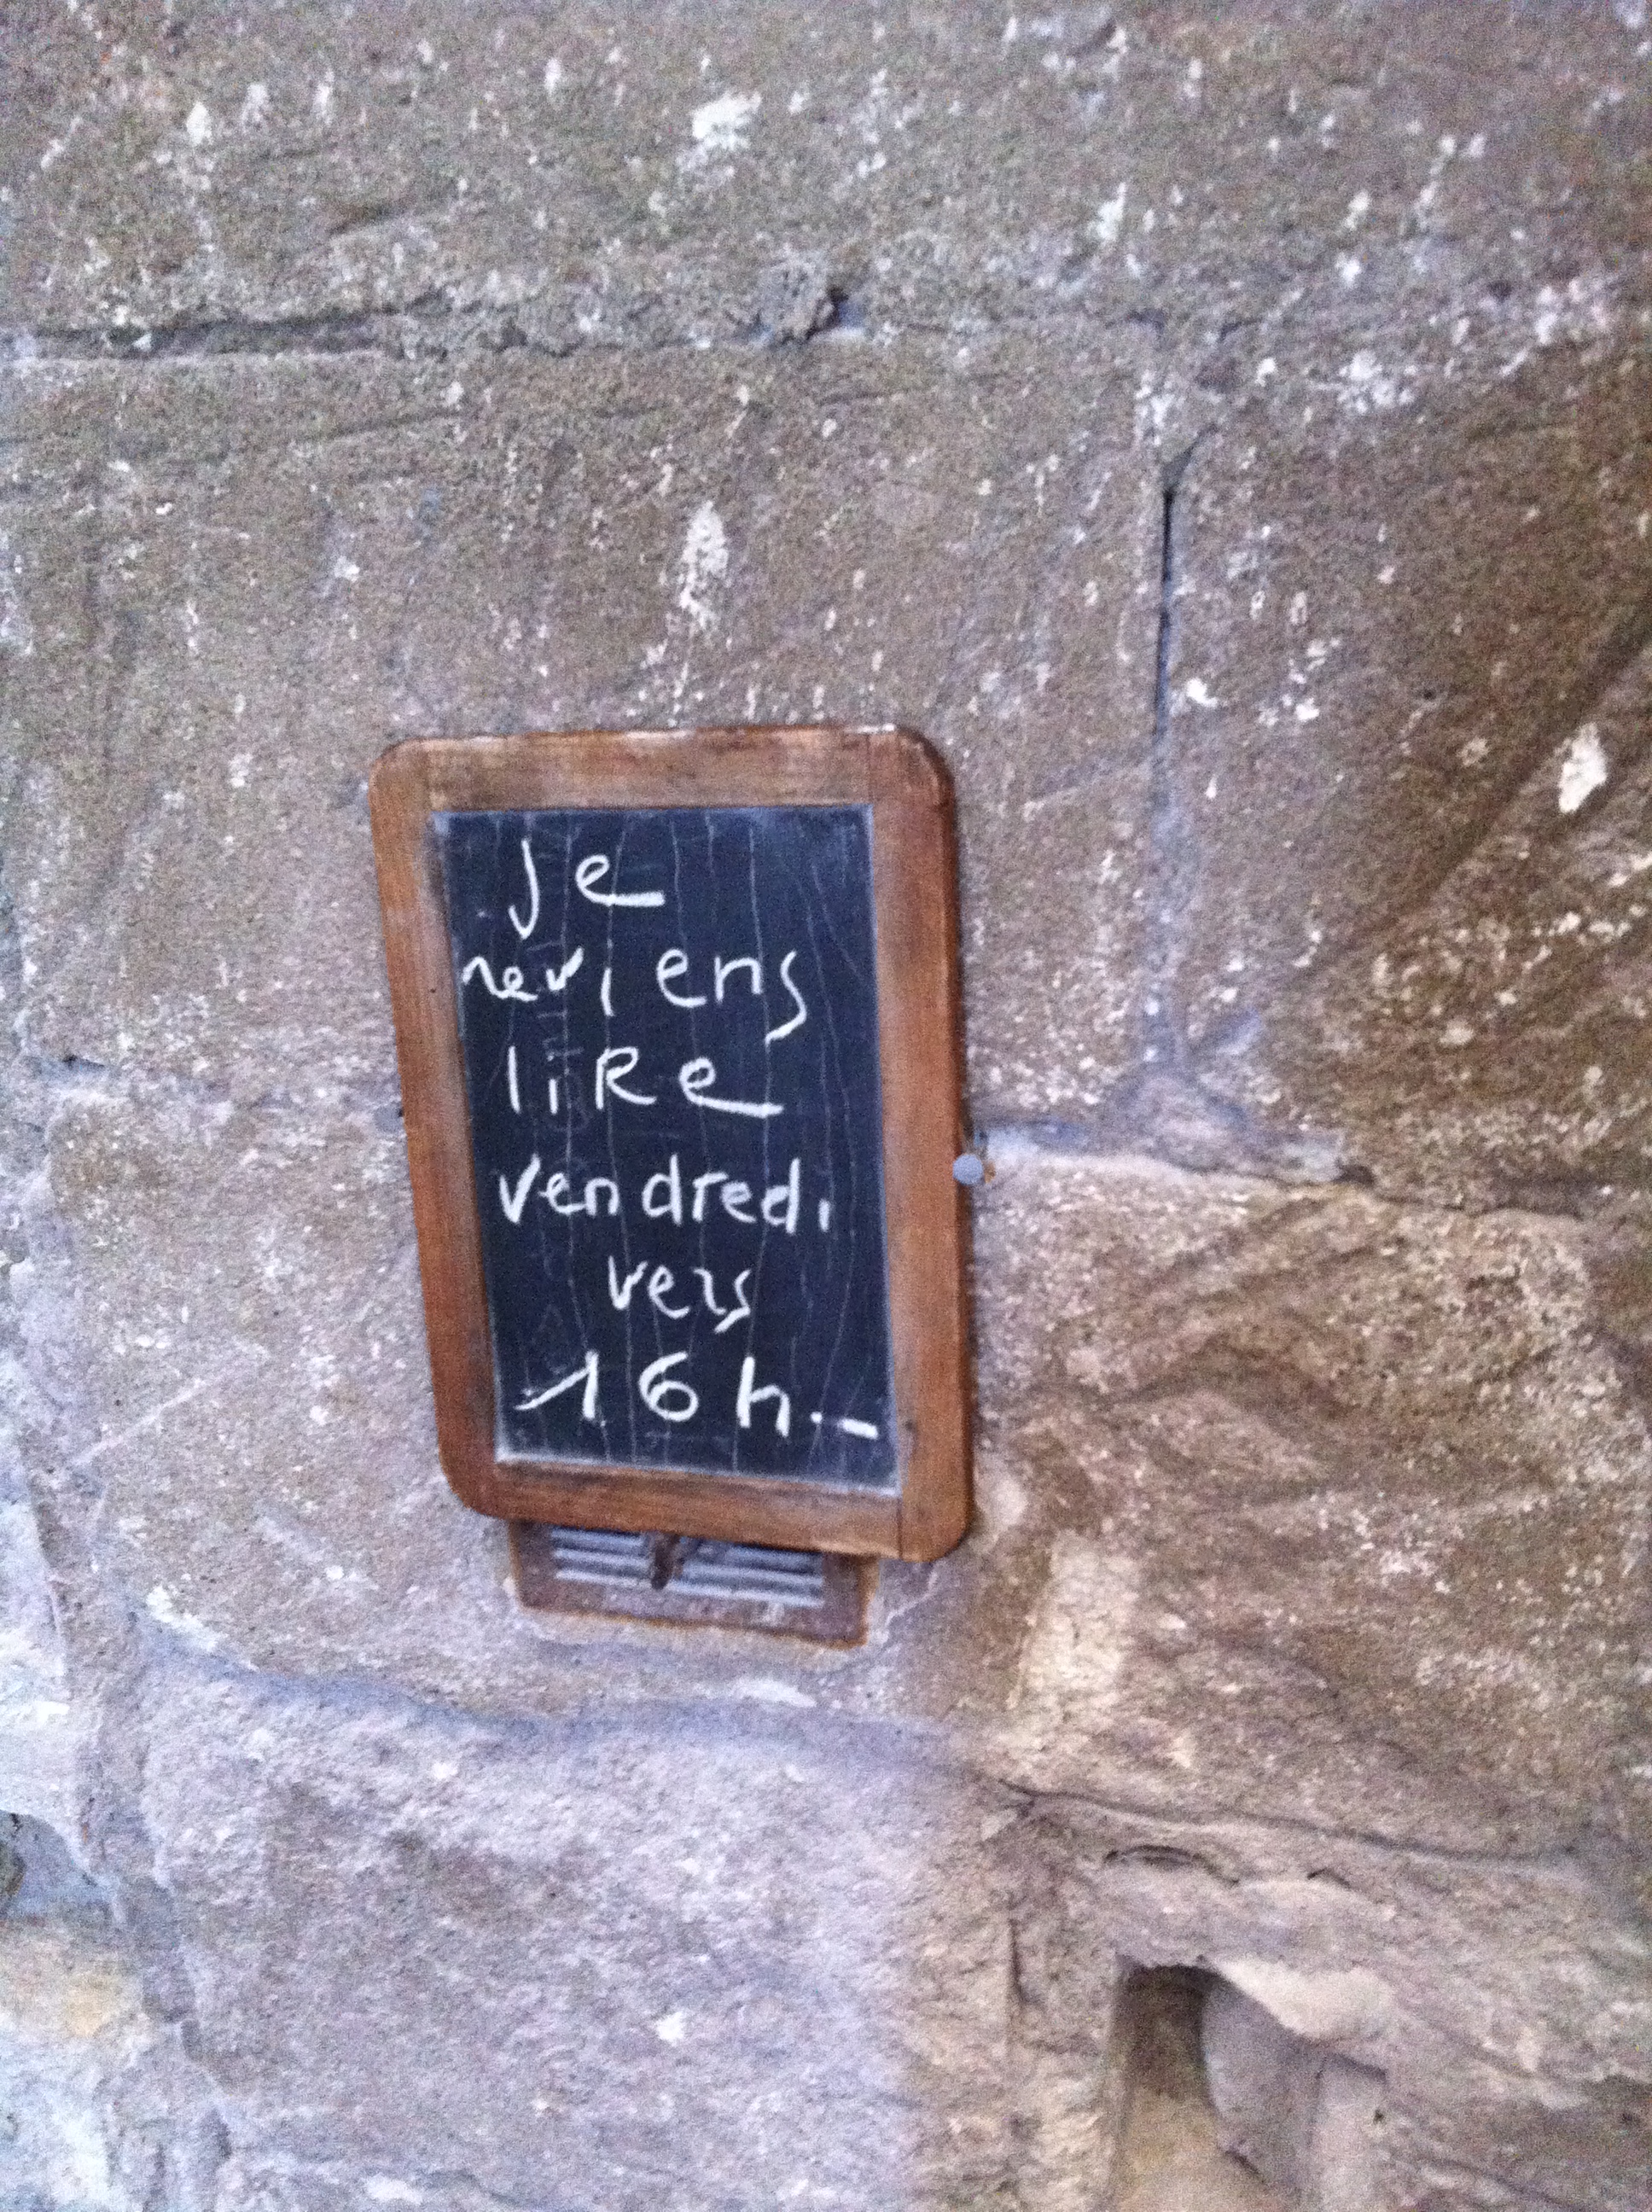 Je
reviens
liRe
vendredi
vers
16h.-